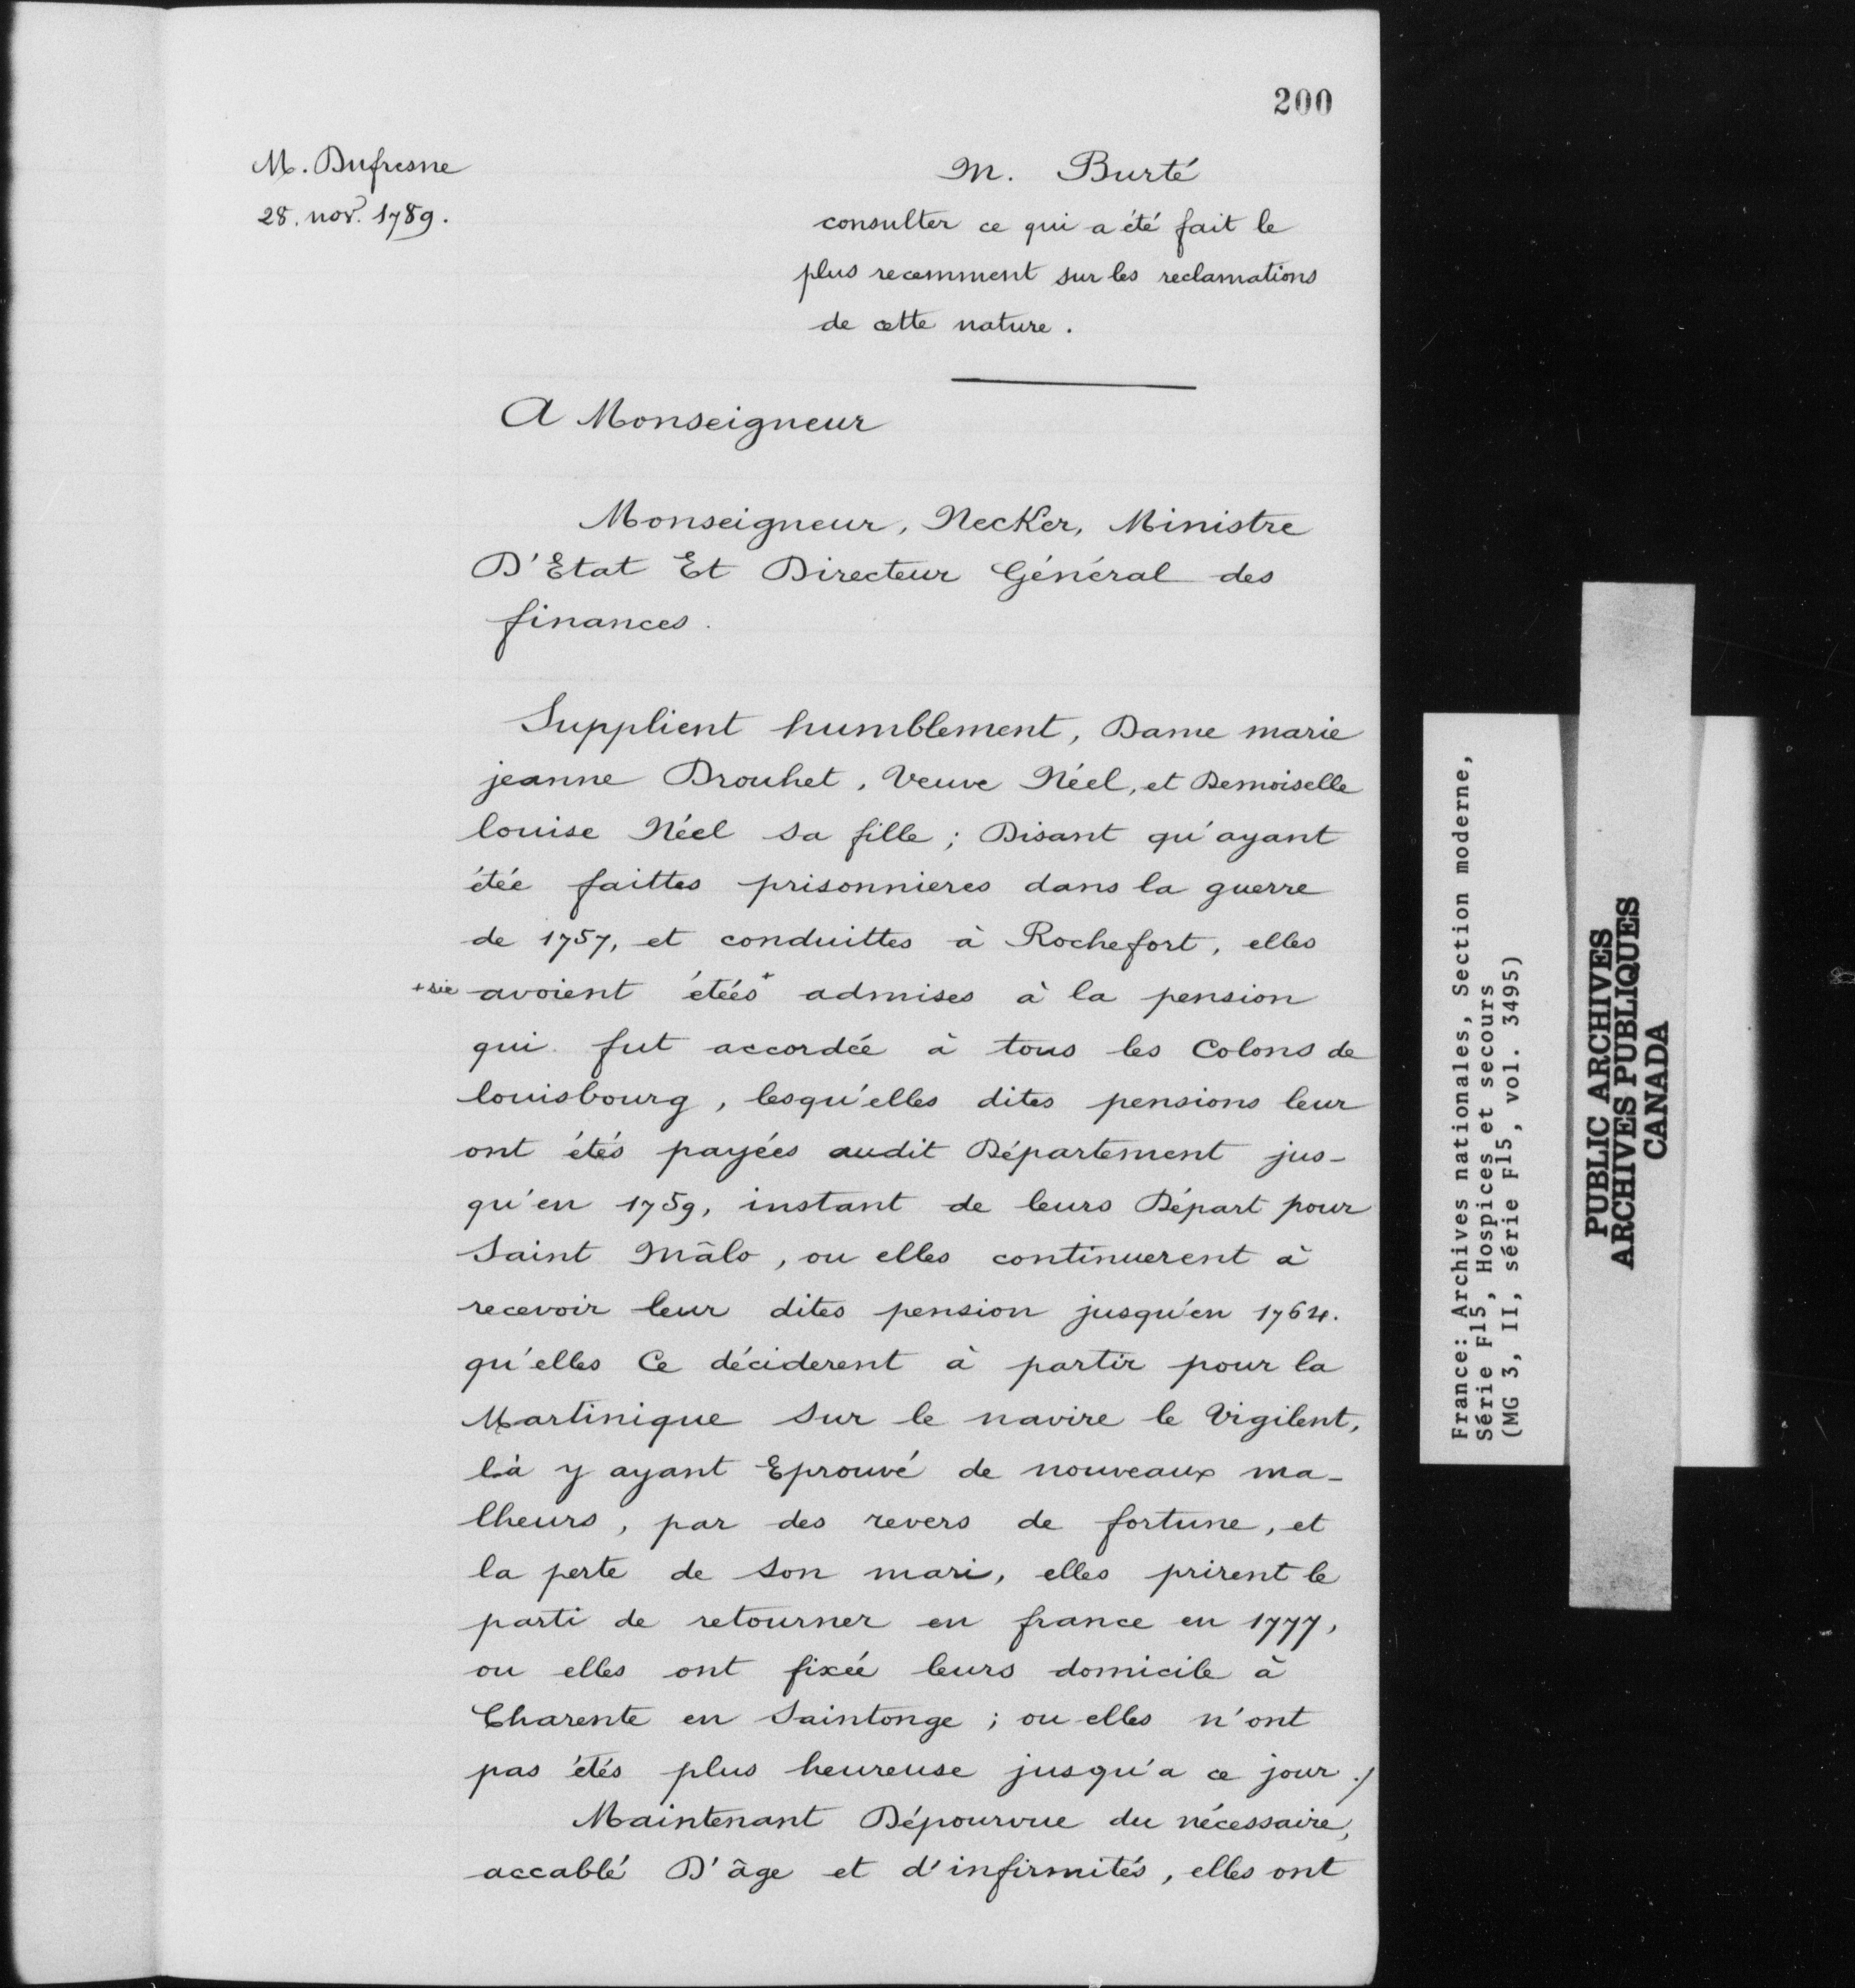 200
M. Dufresne
28. nov. 1789.
M. Burté
consulter ce qui a été fait le
plus recemment sur les reclamations
de cette nature.
A Monseigneur
Monseigneur, Necker, Ministre
D'Etat Et Directeur Général des
finances.
Supplient humblement, Dame marie
jeanne Drouhet, Veuve Néel, et Demoiselle
louise Néel sa fille; Disant qu'ayant
étée faittes prisonnieres dans la guerre
de 1757, et conduittes à Rochefort, elles
+ sic avoient étées+ admises à la pension
qui fut accordée à tous les Colons de
louisbourg, lesqu'elles dites pensions leur
ont étés payées audit Département jus-
qu'en 1759, instant de leurs Départ pour
Saint Mâlo, ou elles continuerent à
recevoir leur dites pension jusqu'en 1764.
qu'elles Ce déciderent à partir pour la
Martinique sur le navire le Vigilent,
là y ayant Eprouvé de nouveaux ma-
lheurs, par des revers de fortune, et
la perte de son mari, elles prirent le
parti de retourner en france en 1777,
ou elles ont fixée leurs domicile à
Charente en Saintonge; ou elles n'ont
pas étés plus heureuse jusqu'a ce jour./
Maintenant Dépourvue du nécessaire,
accablé D'âge et d'infirmités, elles ont
France: Archives nationales, Section moderne,
Série F15, Hospices et secours
(MG 3, II, série F15, vol. 3495)
PUBLIC ARCHIVES
ARCHIVES PUBLIQUES
CANADA